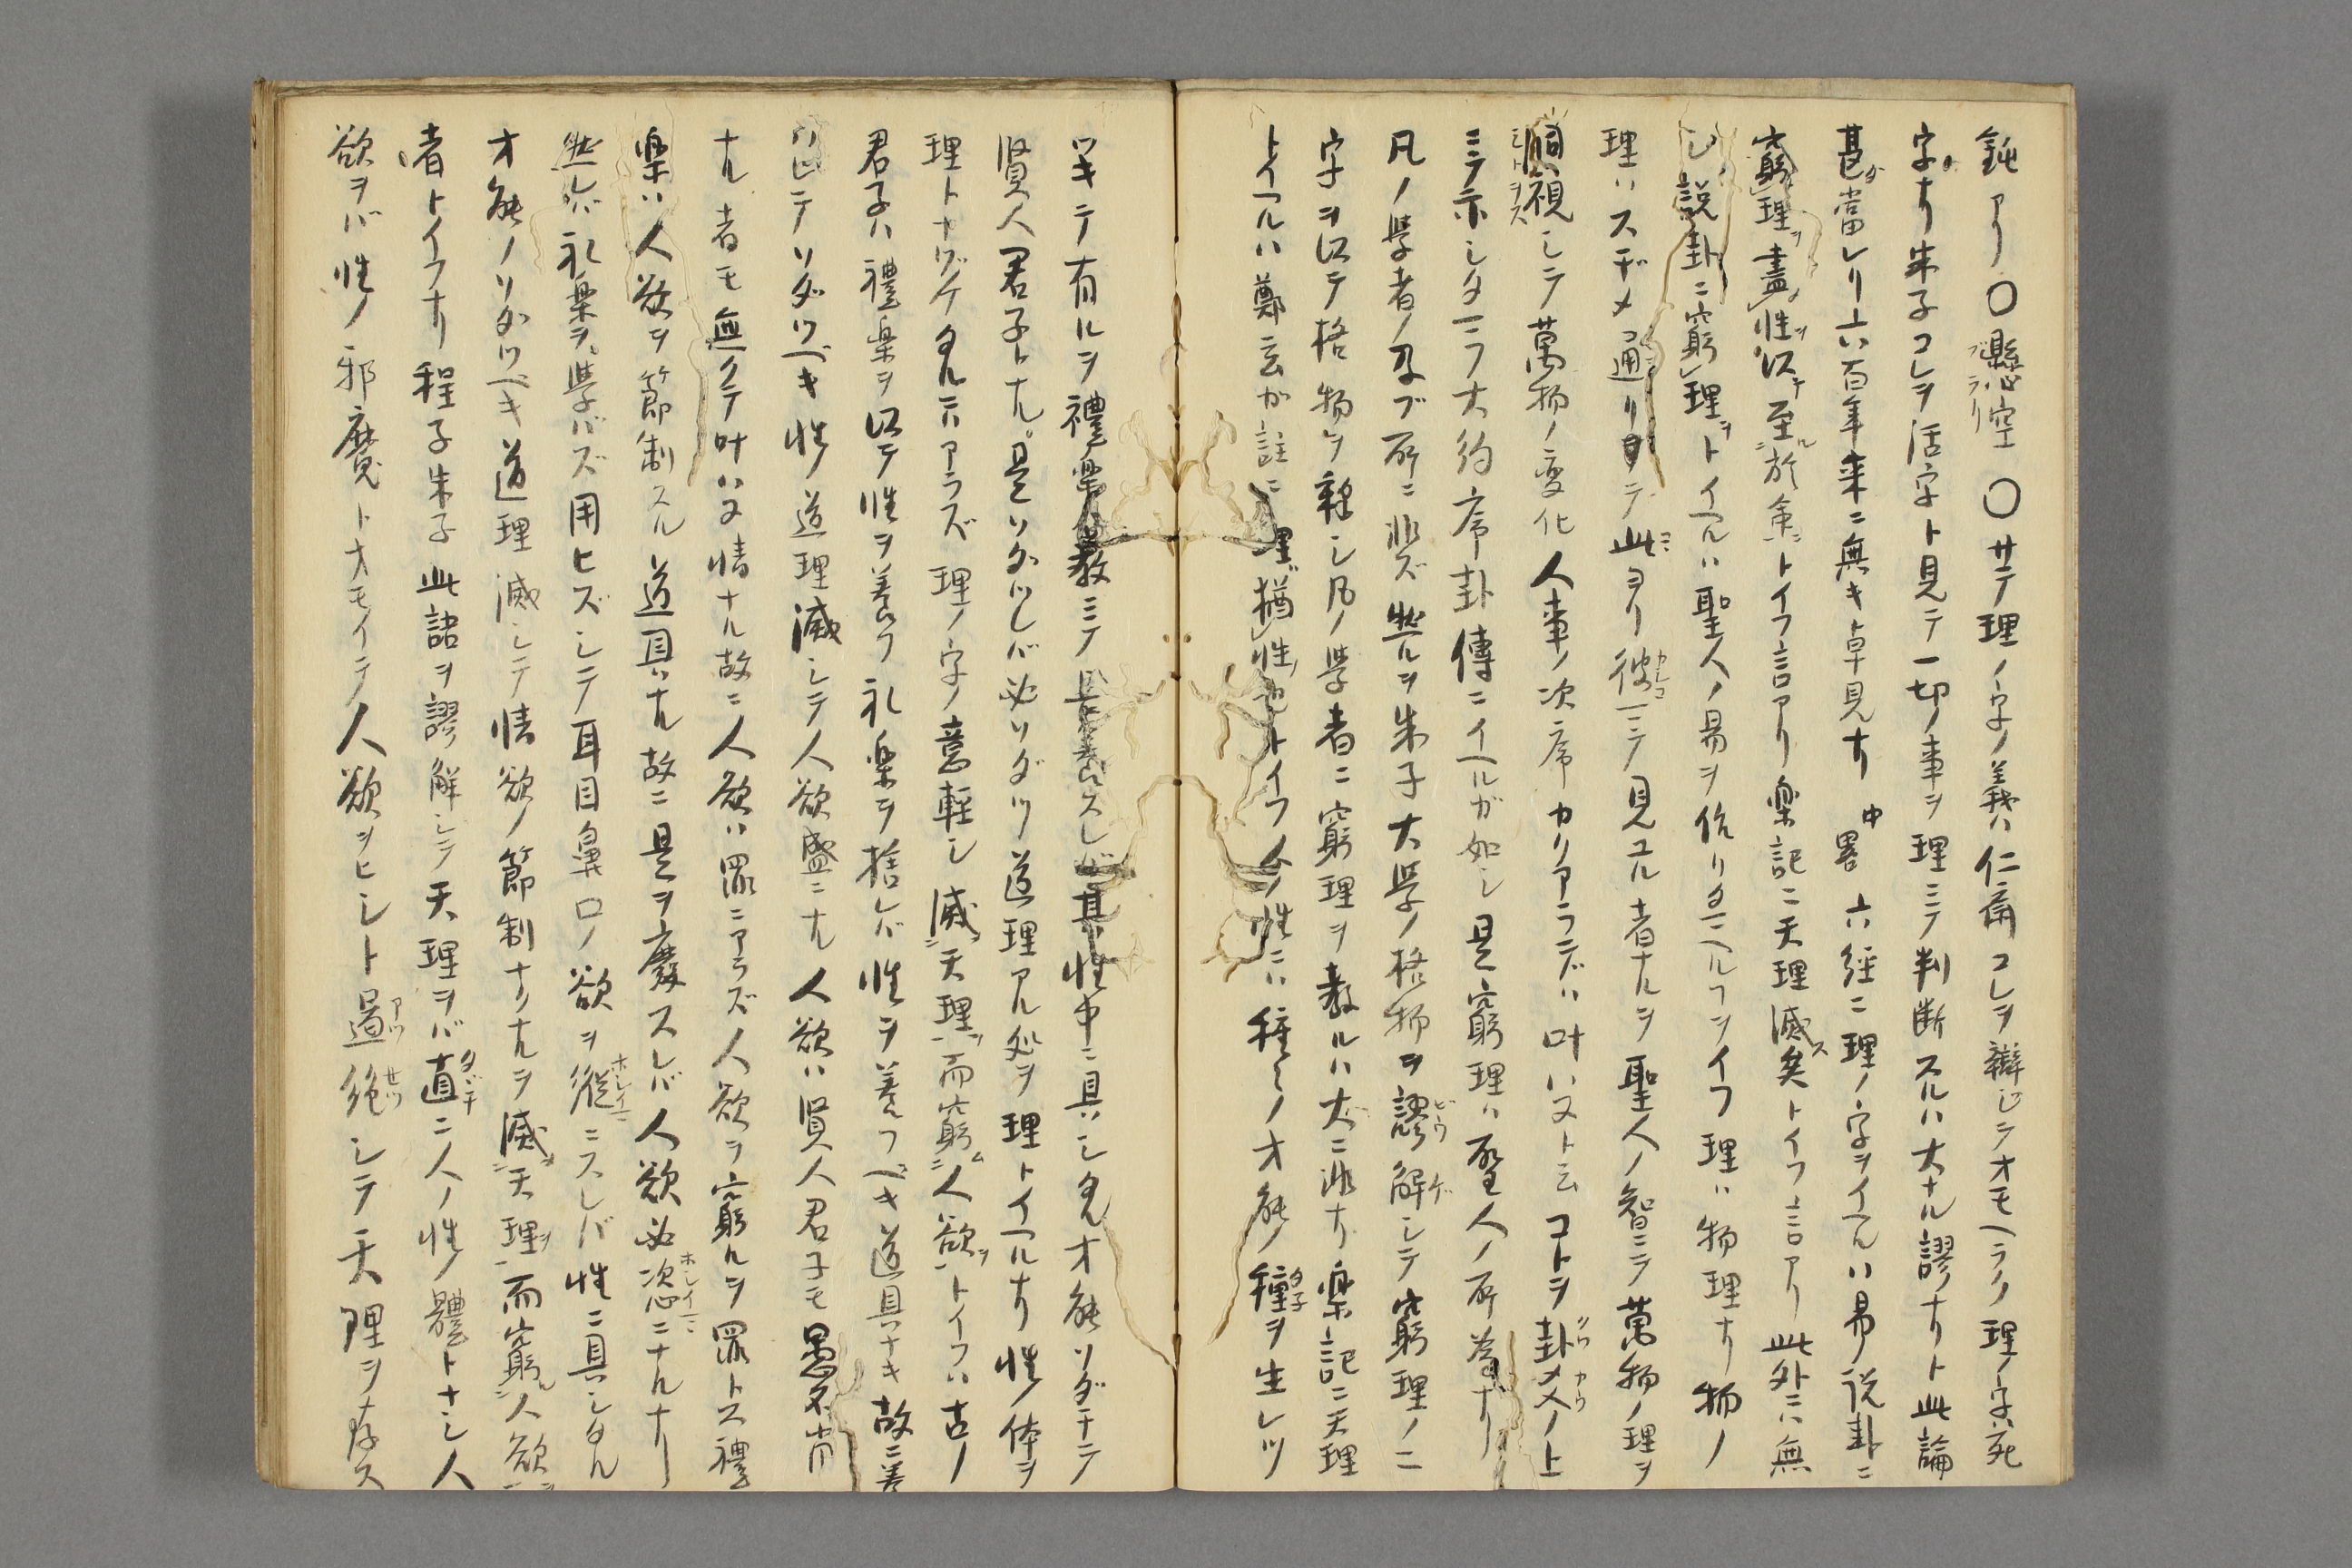 鈍アリ〇懸空〇サテ理ノ字ノ義ハ仁斎コレヲ辯ジテオモヘラク理ノ字ハ死
字ナリ朱子コレヲ活字ト見テ一切ノ事ヲ理ニテ判断スルハ大ナル謬ナリト此論
甚ダ當レリ六百年来ニ無キ卓見ナリ中畧六經ニ理ノ字ヲイヘルハ易ノ説卦ニ
窮理ヲ盡性ヲ以テ至ル於命ニトイフ言アリ楽記ニ天理滅ス矣トイフ言アリ此外ニハ無
シ説卦ニ窮理ヲトイヘルハ聖人ノ易ヲ作リタマヘルコヲイフ理ハ物理ナリ物ノ
理ハスヂメ通リニテ此ヨリ彼マデ見ユル者ナルヲ聖人ノ智ニテ萬物ノ理ヲ
洞視シテ萬物ノ変化人事ノ次序カクアラデハ叶ハヌト云コトヲ卦爻ノ上
ニテ示シタマフ大約序卦傳ニイヘルガ如シ是窮理ハ聖人ノ所為ナリ
凡ノ學者ノ及ブ所ニ非ズ然ルヲ朱子大學ノ格物ヲ謬解シテ窮理ノ二
字ヲ以テ格物ヲ釋シ凡ノ學者ニ窮理ヲ教ルハ大ニ非ナリ楽記ニ天理
トイヘルハ鄭玄ガ註ニ理ハ猶性ノ也トイフ人ノ性ニハ種々ノオ能ノ種ヲ生レツ
ツキテ有ルヲ禮楽ノ教ニテ長養スレバ其性中ニ具シタルオ能ソダチテ
賢人君子トナル是ソダツレバ必ソダツ道理アル処ヲ理トイヘルナリ性ノ体ヲ
理トナヅケタルニハアラズ理ノ字ノ意軽シ滅天理ヲ而窮人欲ヲトイフハ古ノ
君子ハ禮楽ヲ以テ性ヲ養フ礼楽ヲ捨レバ性ヲ養フベキ道具ナキ故ニ善
ソダツベキ性ノ道理滅シテ人欲盛ニナル人欲ハ賢人君子モ愚不肖
ナル者モ無クテ叶ハヌ情ナル故ニ人欲ハ罪ニアラズ人欲ヲ窮ルヲ罪トス禮
楽ハ人欲ヲ節制スル道具ナル故ニ是ヲ廢スレバ人欲必恣ニナルナリ
然レバ礼楽ヲ學バズ用ヒズシテ耳目鼻口ノ欲ヲ縦ニスレバ性ニ具シタル
オ能ノソダツベキ道理滅シテ情欲ノ節制ナクナルヲ滅天理ヲ而窮人欲ヲ
者トイフナリ程子朱子此語ヲ謬解シテ天理ヲバ直ニ人ノ性ノ體トナシ人
欲ヲバ性ノ邪魔トオモイテ人欲ヲヒシト遏絶シテ天理ヲ存ス